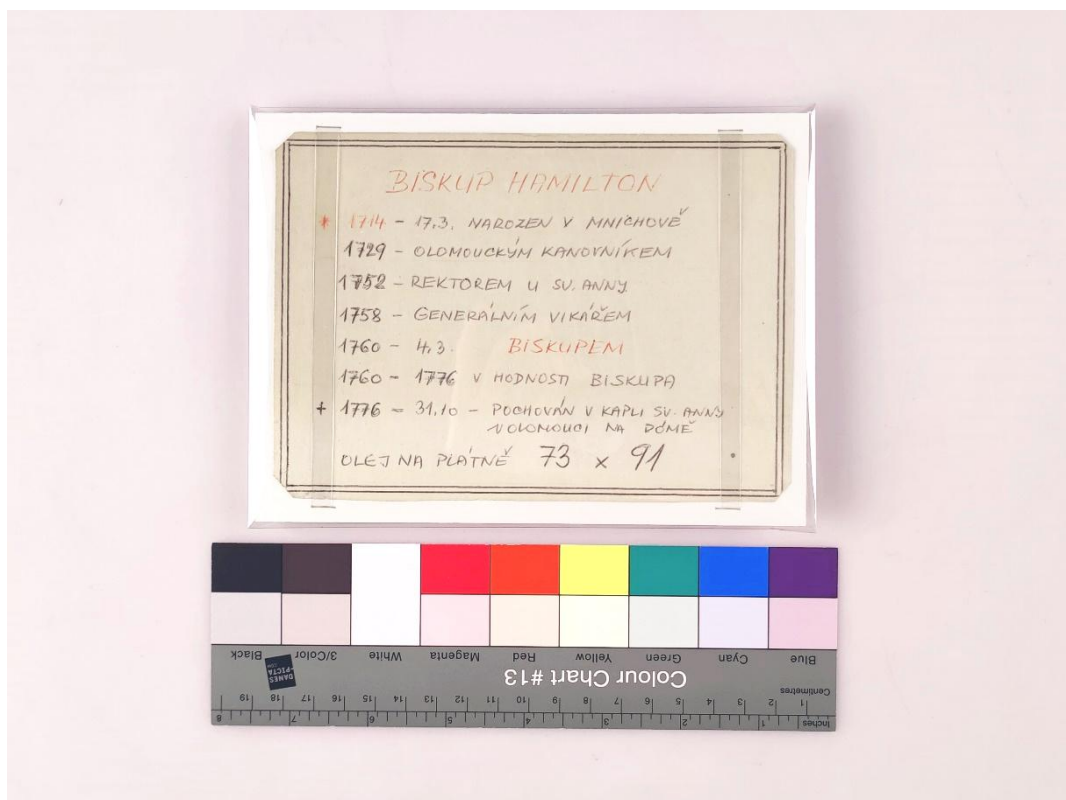 BISKUP HAMILTON
* 1714 - 17.3. NAROZEN V MNICHOVĚ
1729 - OLOMOUCKÝM KANOVNÍKEM
1752 - REKTOREM U SV. ANNY
1758 - GENERÁLNÍM VIKÁŘEM
1760 - 4.3. BISKUPEM
1760 - 1776 V HODNOSTI BISKUPA
+ 1776 - 31.10 - POCHOVÁN V KAPLI SV. ANNY
V OLOMOUCI NA DÓMĚ
OLEJ NA PLÁTNĚ 73 x 91
Blue Cyan Green Yellow Red Magenta White 3/Color Black
Colour Chart #13
DANES
-PICTA
.COM
Centimetres
1 2 3 4 5 6 7 8 9 10 11 12 13 14 15 16 17 18 19
Inches 1 2 3 4 5 6 7 8